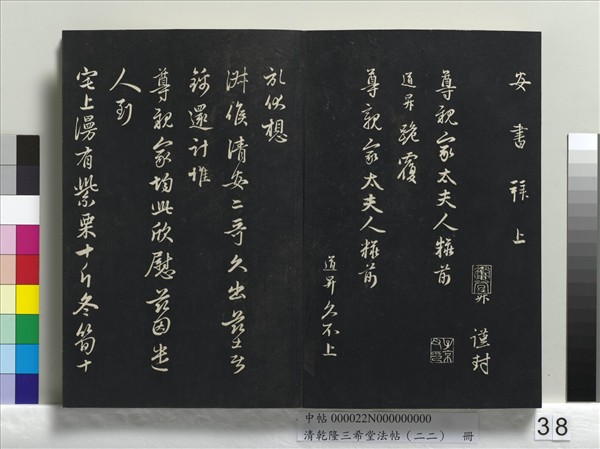 安書拜上
尊親家太夫人粧前
昇 謹封
道昇跪覆
尊親家太夫人粧前
道昇久不上
亂伏想
淑候清安二哥久出茲
錦還計惟
尊親家均此欣慰茲因
人到
宅上漫有紫栗十斤冬笋十
中帖 000022N000000000
清乾隆三希堂法帖(二二) 冊
38